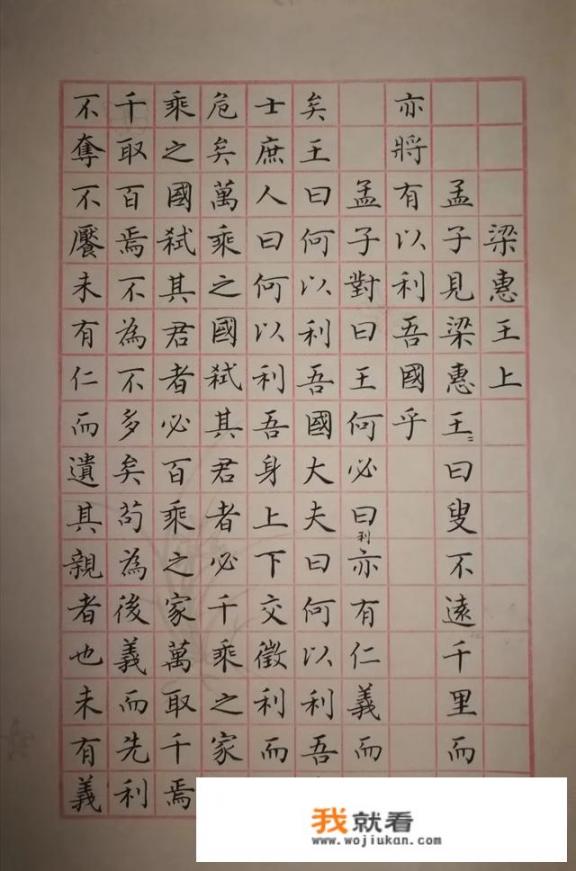 梁惠王上
孟子見梁惠王〻曰叟不遠千里而
亦將有以利吾國乎
孟子對曰王何必曰利亦有仁義而
矣王曰何以利吾國大夫曰何以利吾
士庶人曰何以利吾身上下交徵利而
危矣萬乘之國弒其君者必千乘之家
乘之國弒其君者必百乘之家萬取千焉
千取百焉不為不多矣苟為後義而先利
不奪不饜未有仁而遺其親者也未有義
我就看
www.wojiukan.com